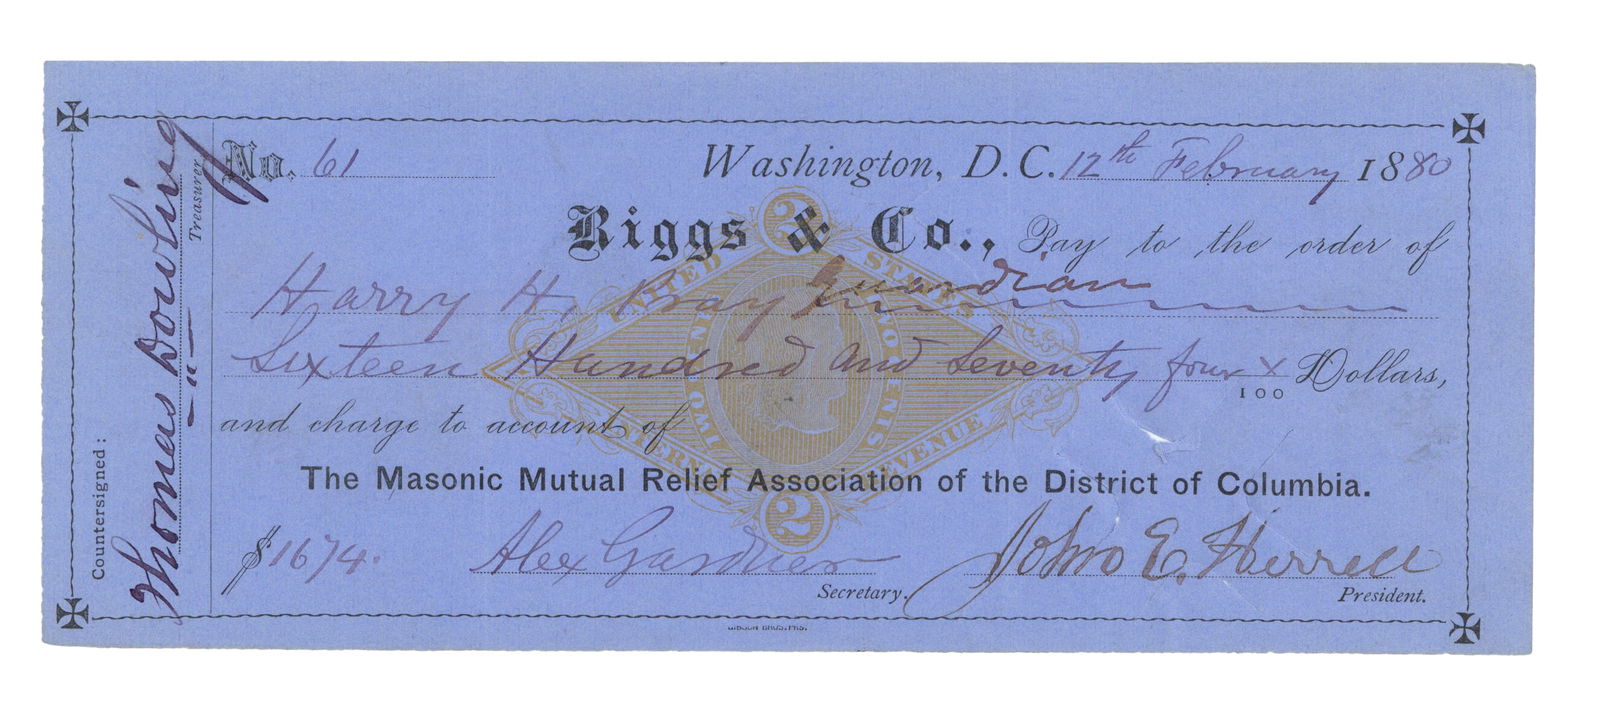 No. 61 Washington, D.C. 12th February 1880
Riggs & Co., Pay to the order of
Harry H. Bray Guardian
Sixteen Hundred and Seventy four x/100 Dollars,
and charge to account of
The Masonic Mutual Relief Association of the District of Columbia.
$1674.
Alex Gardner
Secretary.
John E. Herrell
President.
Countersigned:
Thomas Dowling
Treasurer
UNITED STATES
INTERNAL REVENUE
TWO CENTS
2
2
GIBSON BROS. PRS.